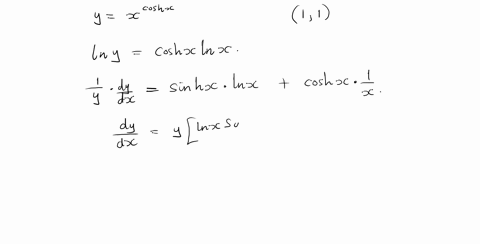 y = x^coshx (1,1)
ln y = coshx lnx.
1/y · dy/dx = sinhx · lnx + coshx · 1/x.
dy/dx = y [lnx s